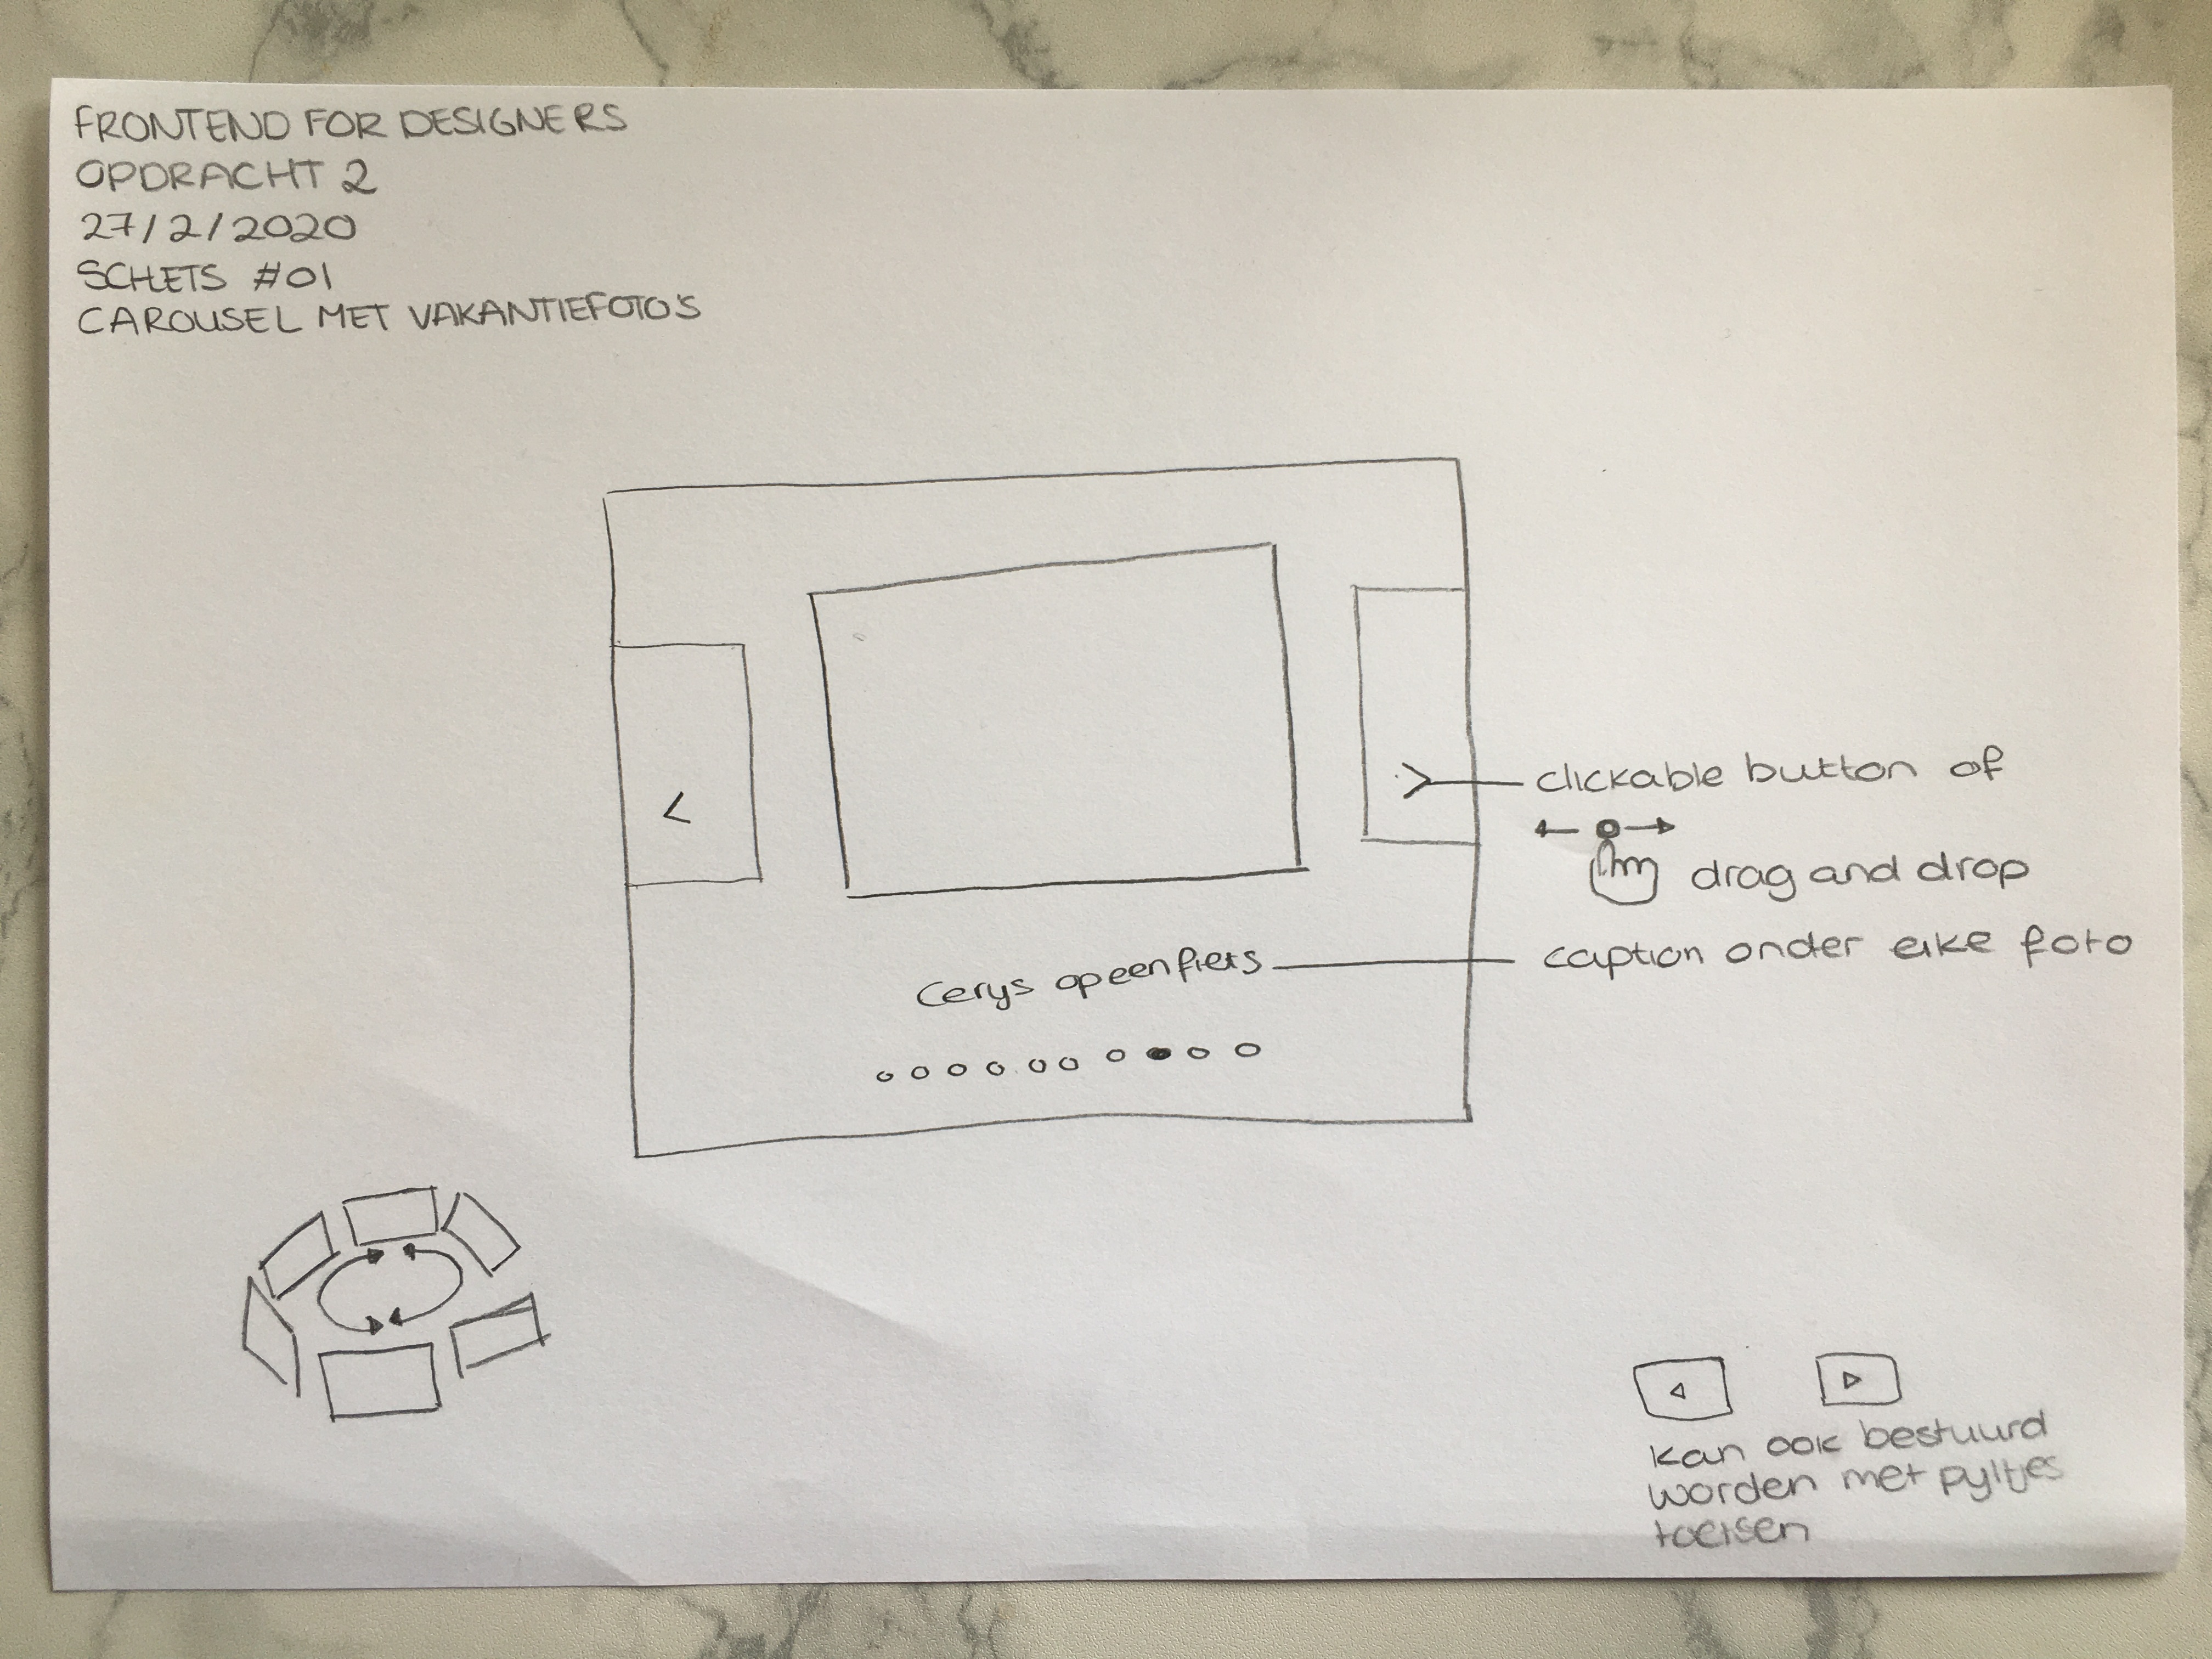 FRONTEND FOR DESIGNERS
OPDRACHT 2
27/2/2020
SCHETS #01
CAROUSEL MET VAKANTIEFOTO'S
<
>
clickable button of
drag and drop
Cerys op een fiets
caption onder elke foto
kan ook bestuurd
worden met pyltjes
toetsen